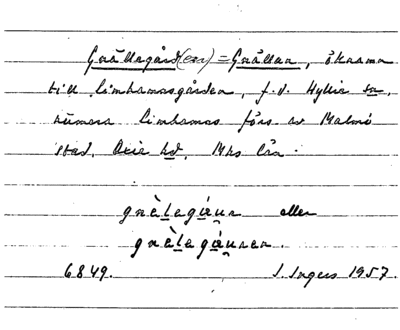 Gnällegård(en) = Gnällan, öknamn
till Limhamnsgården, f.d. Hyllie sn,
numera Limhamns förs. av Malmö
stad, Oxie hd, Mhs län.
gnè̱legá̱u̯ṇ eller
gnè̱legá̱u̯nen.
6849. I. Ingers 1957.